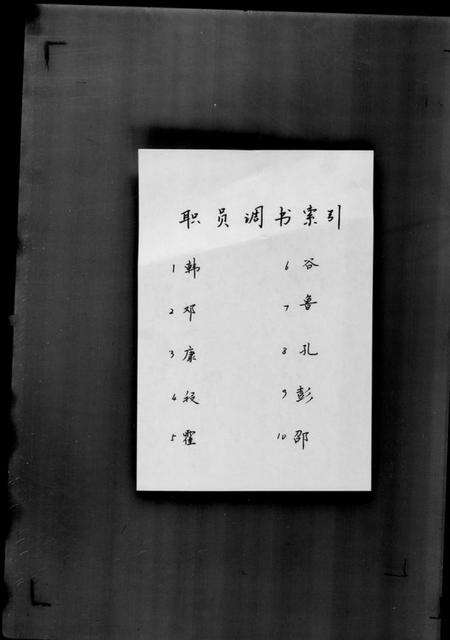 职员调书索引
1 韩
2 邓
3 康
4
5 霍
6 谷
7 鲁
8 孔
9 彭
10 邵